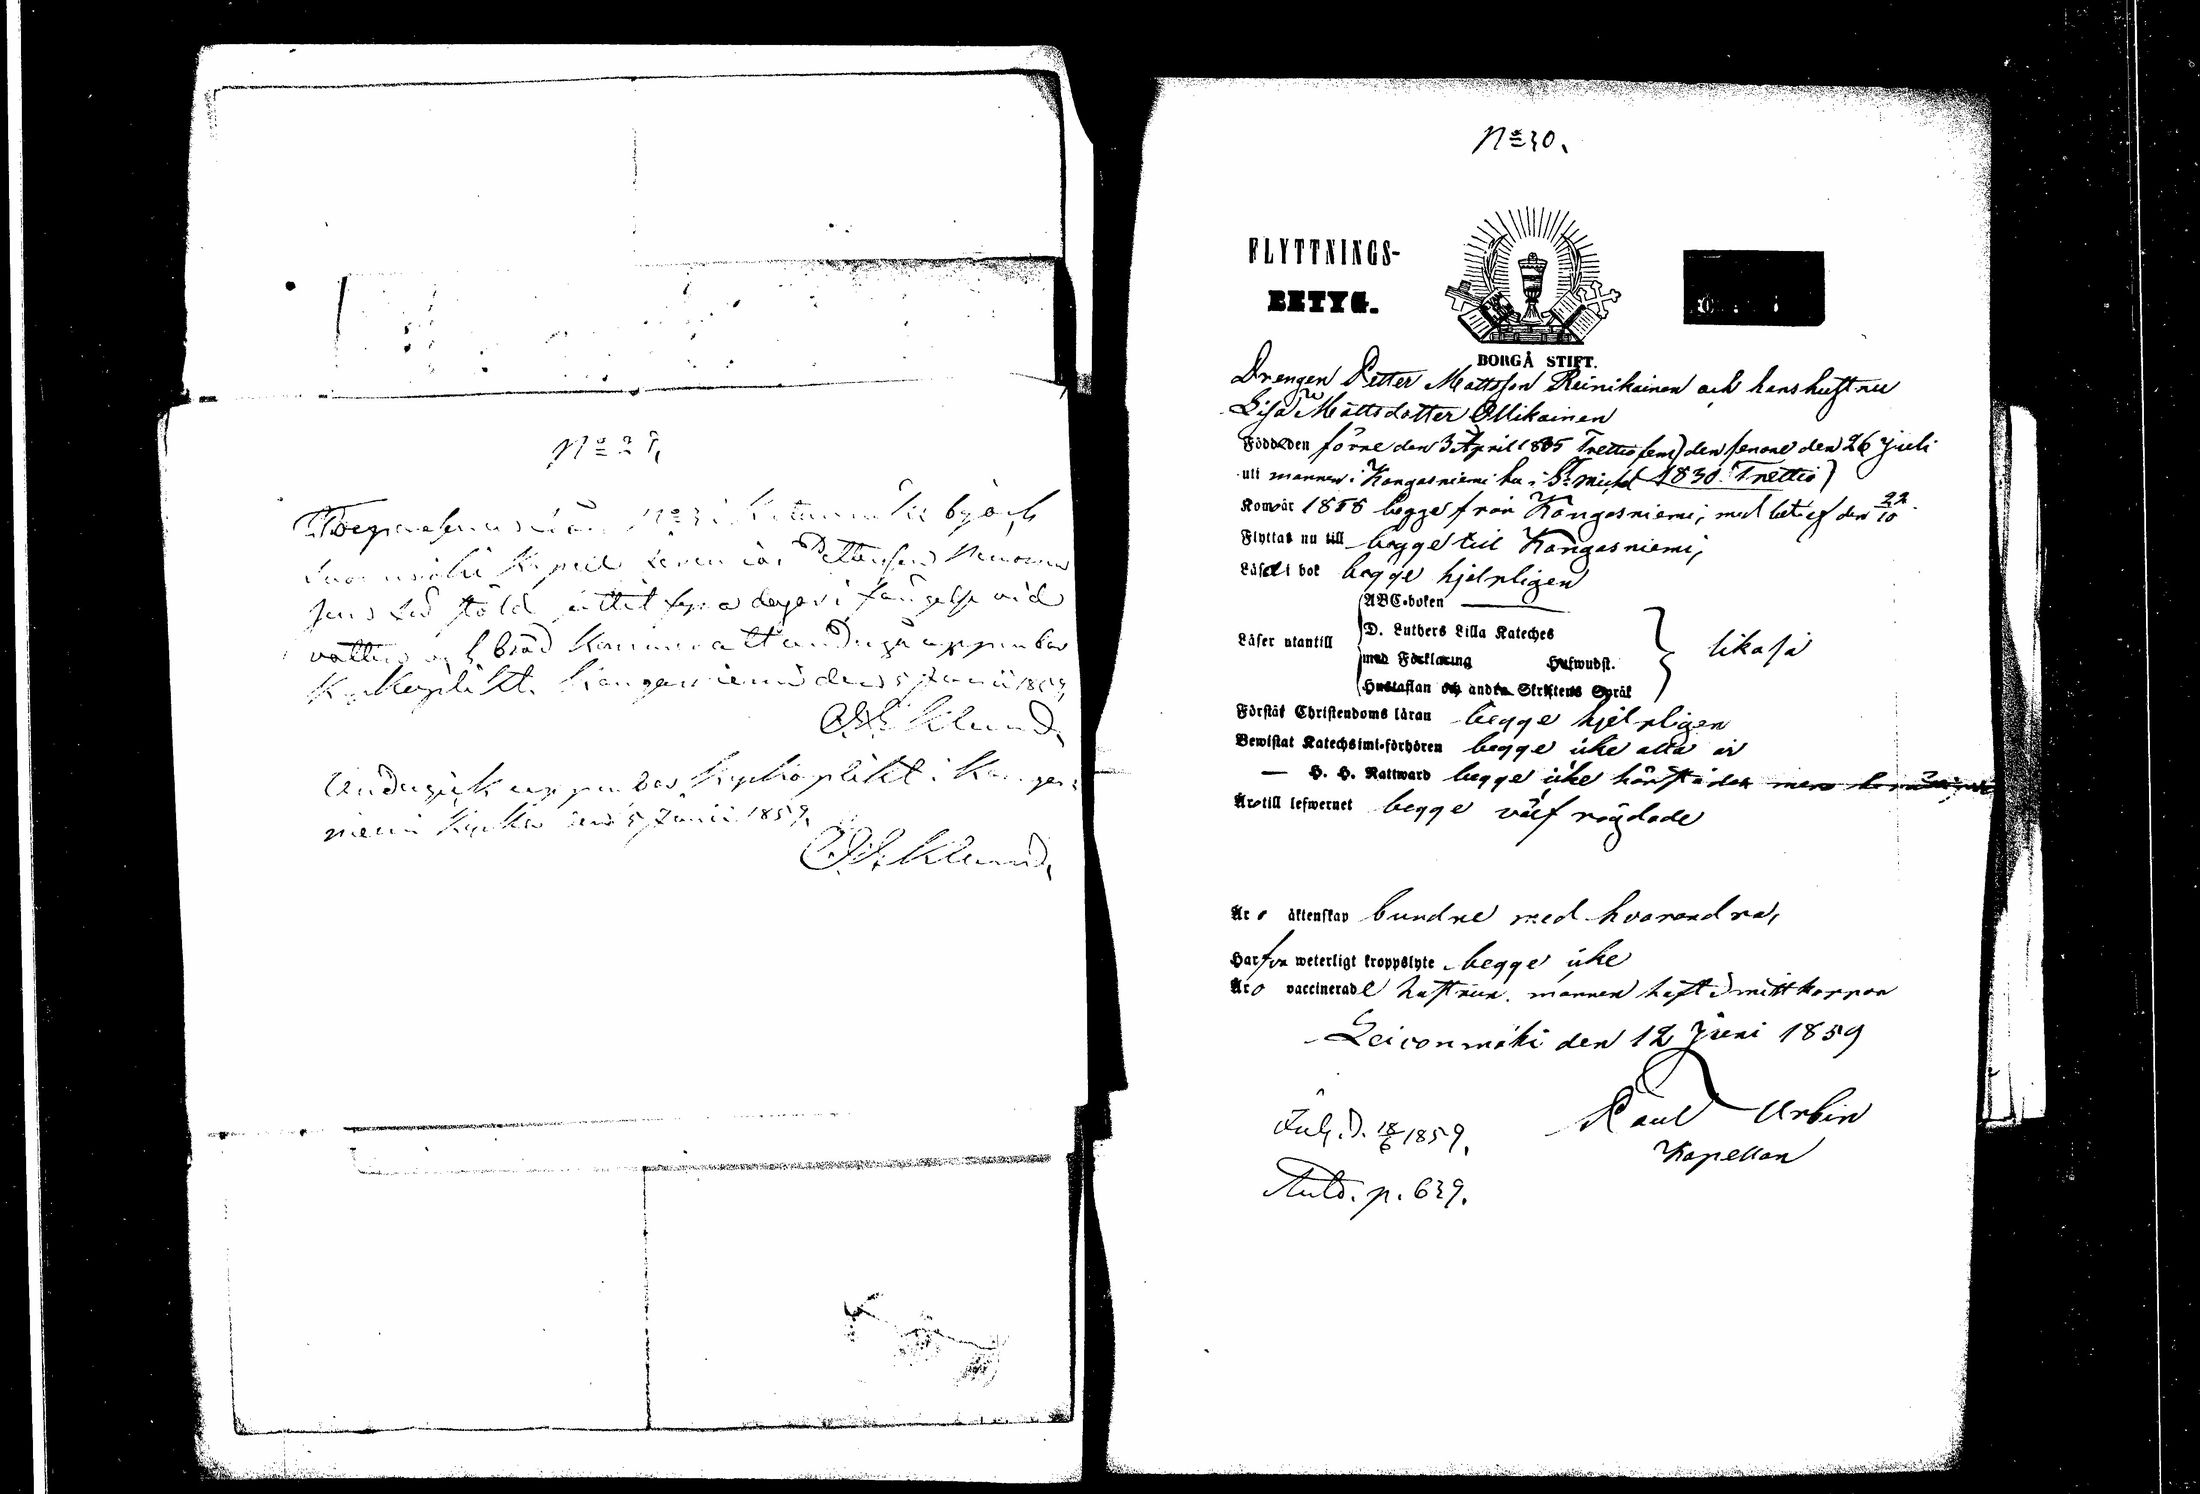 N:o 29,
N:o 3 i by och
Kapell Pettersson
stöld fyra dagar i fängelse vid
vatten och bröd kommer att undergå uppenbar
Kyrkoplikt. Kangasniemi den 5 Junii 1859,
Undergick uppenbar Kyrkoplikt i Kangas-
niemi Kyrka den 5 Junii 1859.
N:o 30.
FLYTTNINGS-
BETYG.
BORGÅ STIFT.
Drengen Petter Mattsson Reinikainen och hans hustru
Lisa Mattsdotter Ollikainen
Född den förre den 3 April 1835 Trettiofem) den senare den 26 Juli
uti mannen i Kangasniemi hu i S:t Michel 1830. Trettio)
Kom år 1858 begge från Kangasniemi, med betyg den 22/10.
Flyttat nu till begge till Kangasniemi,
Läser i bok begge hjelpligen
ABC-boken
D. Luthers Lilla Kateches
Läser utantill likaså
med Förklaring Hufwudst.
Hustaflan och andra Skriftens Språk
Förstår Christendoms läran begge hjelpligen
Bewistat Katechsimi-förhören begge icke alla år
— H. H. Nattward begge icke härstädes
Äro till lefwernet begge välfrägdade
Äro äktenskap bundne med hvarandra,
Harfva weterligt kroppslyte begge icke
Äro vaccinerade hustrun. mannen haft koppor
Leivonmäki den 12 Juni 1859
Paul Urbin
Kapellan
Inl. d. 18/6 1859.
p. 639.